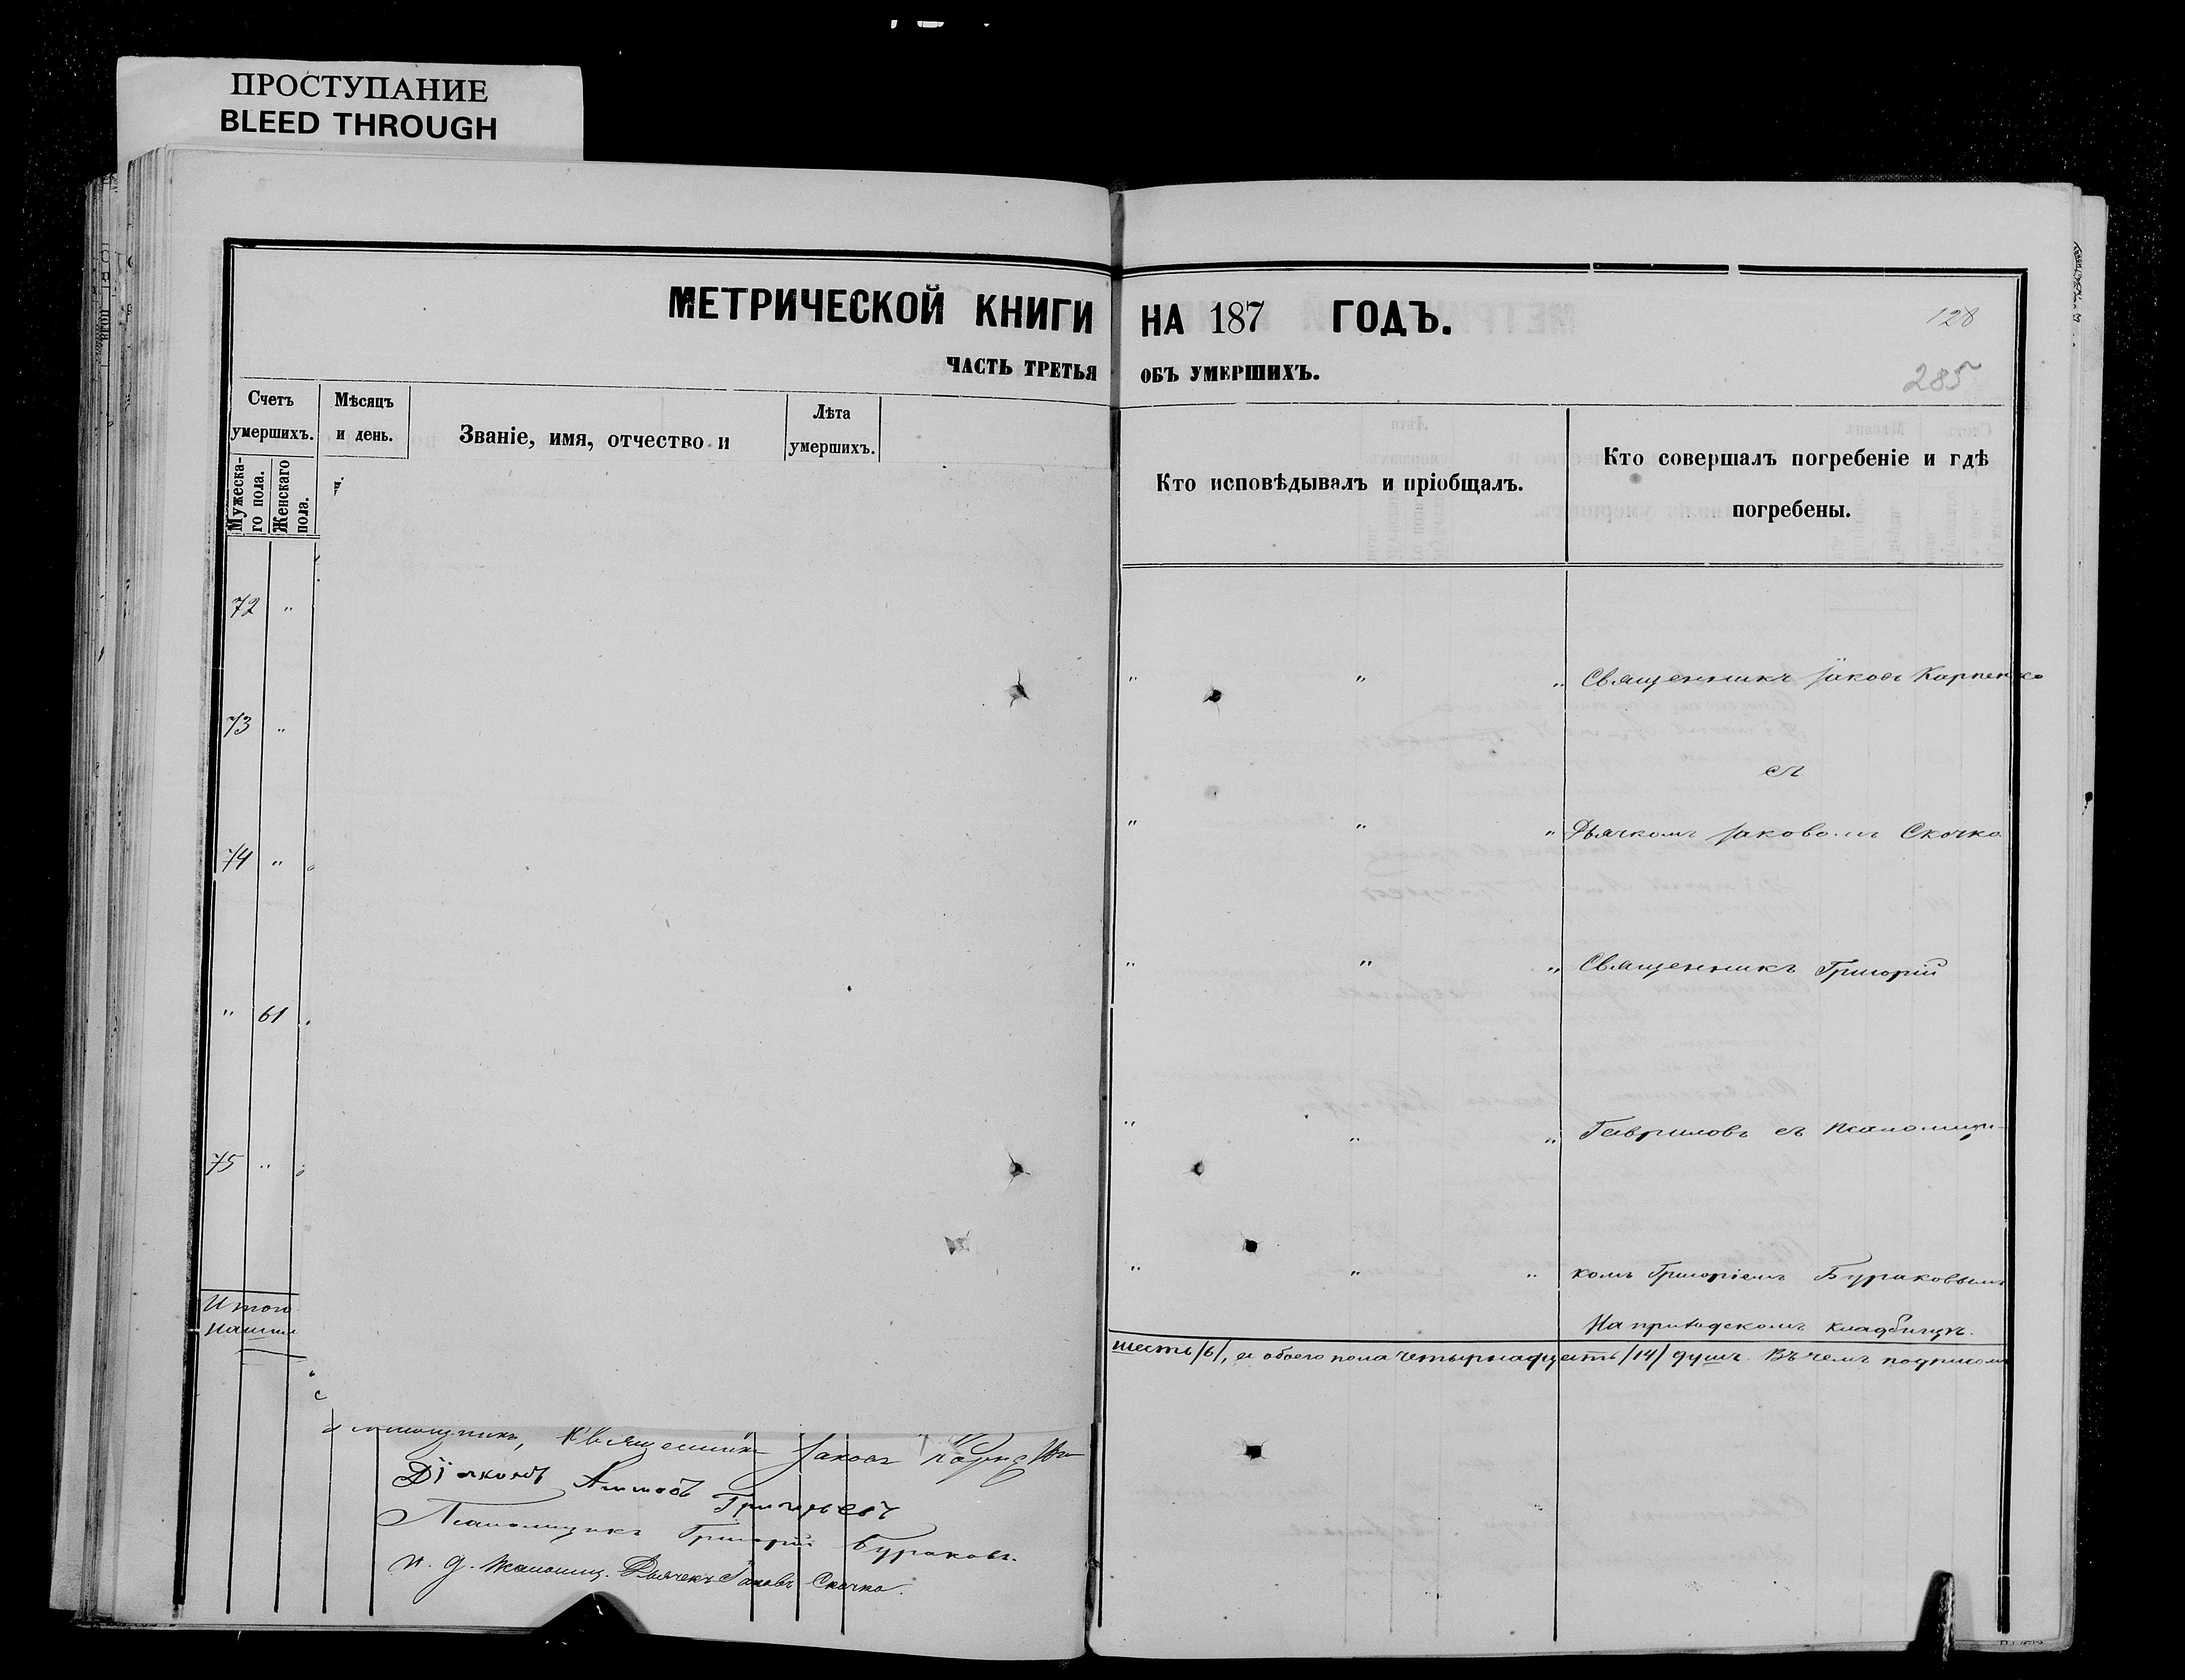 ПРОСТУПАНИЕ
BLEED THROUGH
МЕТРИЧЕСКОЙ КНИГИ НА 187 ГОДЪ.
128
ЧАСТЬ ТРЕТЬЯ ОБЪ УМЕРШИХЪ.
285
Счетъ умершихъ.
Мужеска-
го пола.
Женскаго
пола.
Мѣсяцъ
и день.
Званіе, имя, отчество и
Лѣта
умершихъ.
Кто исповѣдывалъ и пріобщалъ.
Кто совершалъ погребеніе и гдѣ
погребены.
72 "
" " " Священникъ Іаковъ Карпенко
73 "
съ
" " " Дьячкомъ Іаковомъ Скочко
74 "
" " " Священникъ Григорій
" 61
" " " Гавриловъ съ псаломщи-
75 "
" " " комъ Григоріемъ Бураковымъ
Итого
На приходскомъ кладбищѣ.
шесть /6/, а обоего пола четырнадцать /14/ душъ. Въ чемъ подписом
Священникъ Іаковъ
Діяконъ Григорьевъ
Псаломщикъ Григорій Бураковъ.
И. д. псаломщ. Дьячекъ Іаковъ Скочко.